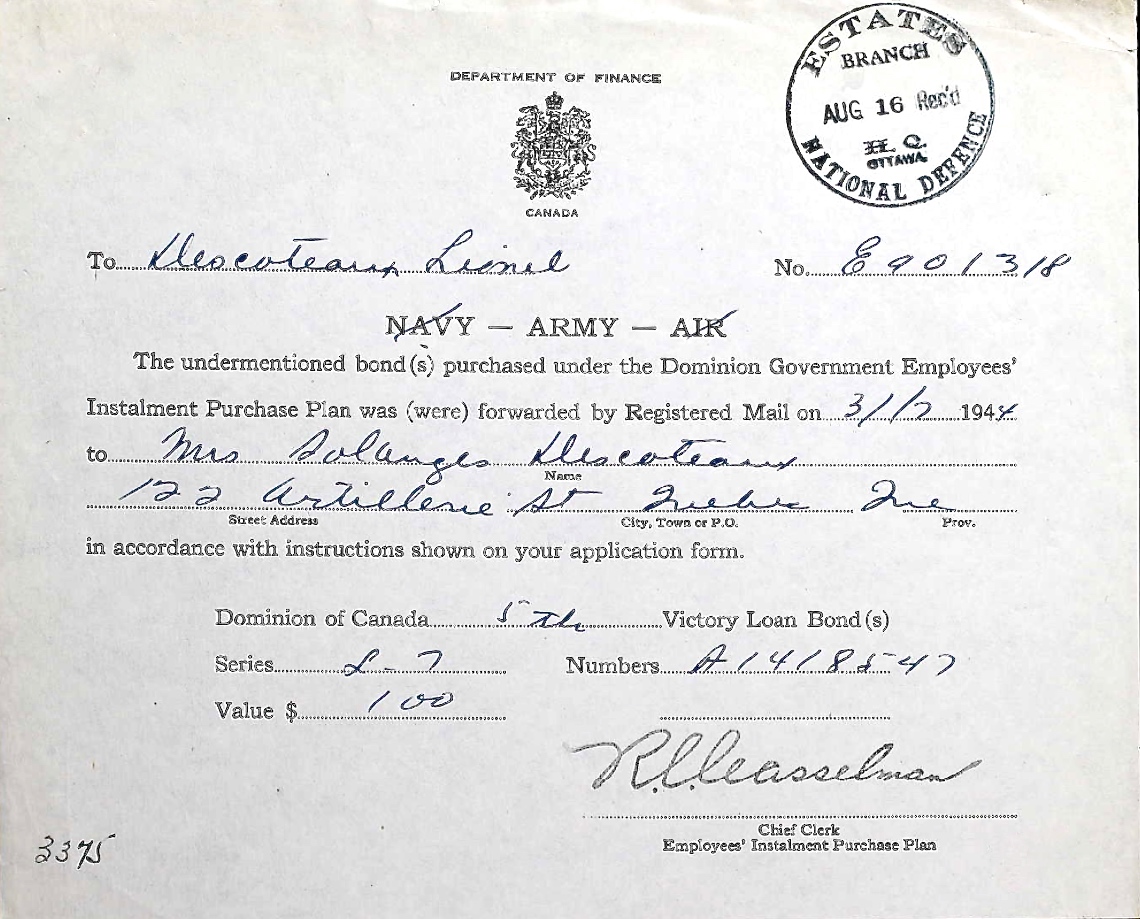 ESTATES
BRANCH
AUG 16 Rec'd
H.Q.
OTTAWA
NATIONAL DEFENCE
DEPARTMENT OF FINANCE
CANADA
To Descoteaux Lionel No. E901318
NAVY — ARMY — AIR
The undermentioned bond(s) purchased under the Dominion Government Employees'
Instalment Purchase Plan was (were) forwarded by Registered Mail on 31/7 1944
to Mrs Solanges Descoteaux
Name
122 Artillerie St Quebec Que
Street Address City, Town or P.O. Prov.
in accordance with instructions shown on your application form.
Dominion of Canada 5th Victory Loan Bond(s)
Series L-7 Numbers A1418547
Value $ 100
Chief Clerk
Employees' Instalment Purchase Plan
3375